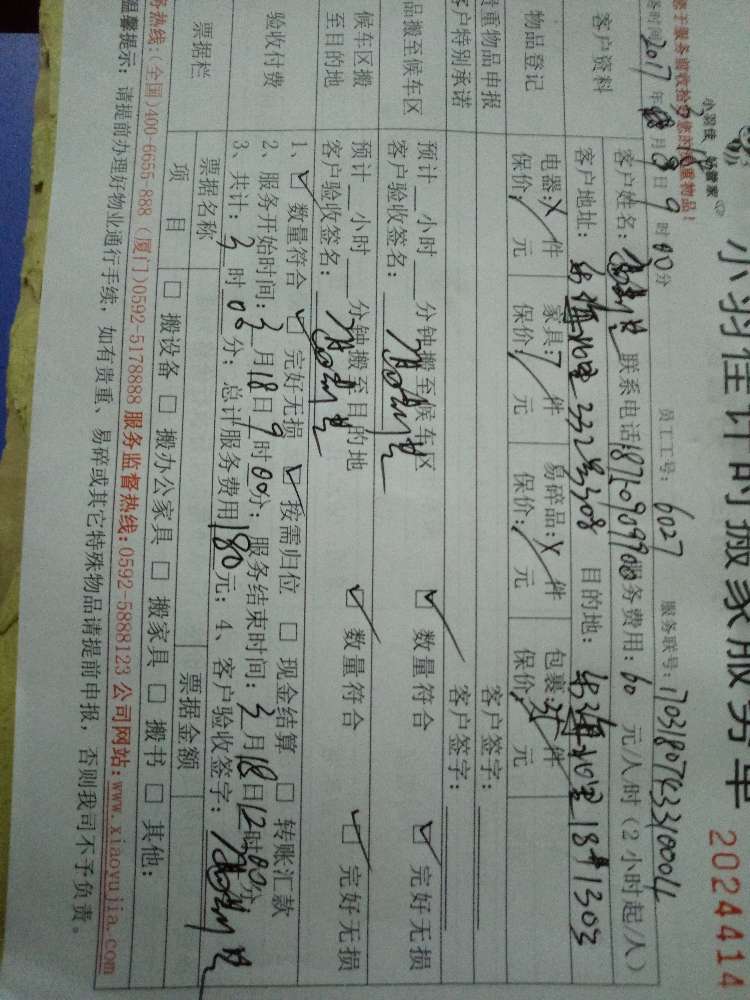 小羽佳计时搬家服务单 20244414
小羽佳 好管家
员工工号: 6027 服务联号: 170318074331000
2017年 月18日9时00分
客户资料 客户姓名: 联系电话: 服务费用: 60 元/人/时 (2小时起/人)
客户地址: 332号308 目的地: 18#1303
物品登记 电器: X 件 家具: 7 件 易碎品: X 件 包裹: 件
保价: / 元 保价: / 元 保价: / 元 保价: 元
贵重物品申报 客户签字:
客户特别承诺 客户签字:
品搬至候车区 预计__小时__分钟搬至候车区 ☑ 数量符合 ☑ 完好无损
客户验收签名:
候车区搬至目的地 预计__小时__分钟搬至目的地 ☑ 数量符合 ☑ 完好无损
客户验收签名:
验收付费 1、☑ 数量符合 ☑ 完好无损 ☑ 按需归位 □ 现金结算 □ 转账汇款
2、服务开始时间: 3月18日9时00分; 服务结束时间: 3月18日12时00分
3、共计: 3时00分; 总计服务费用180元; 4、客户验收签字:
票据栏 票据名称 票据金额
项目 □ 搬设备 □ 搬办公家具 □ 搬家具 □ 搬书 □ 其他:
务热线: (全国)400-6655 888 (厦门)0592-5178888 服务监督热线: 0592-5888123 公司网站: www.xiaoyujia.com
温馨提示: 请提前办理好物业通行手续, 如有贵重、易碎或其它特殊物品请提前申报, 否则我司不予负责。